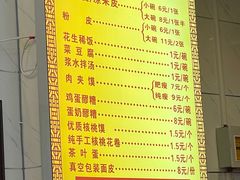 凉米皮 小碗 6元/1张
大碗 8元/1张半
粉皮 小碗 6元/1张
大碗 11元/2张
花生稀饭 1元/碗
菜豆腐 1元/碗
浆水拌汤 1元/碗
肉夹馍 肥瘦 7元/个
纯瘦 9元/个
鸡蛋醪糟 6元/碗
蛋奶醪糟 8元/碗
优质核桃馍 1.5元/个
纯手工核桃花卷 1.5元/个
茶叶蛋 1.5元/个
真空包装面皮 8元/份